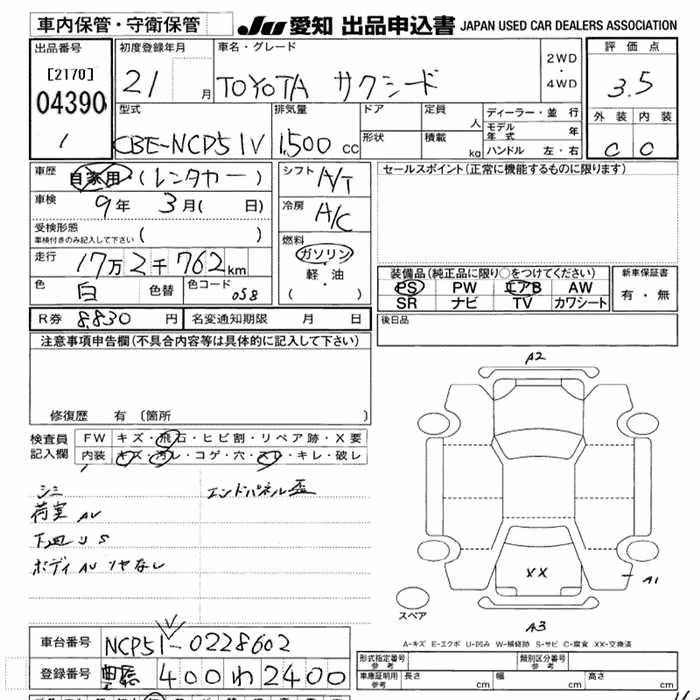 車内保管・守衛保管 JU 愛知 出品申込書 JAPAN USED CAR DEALERS ASSOCIATION
出品番号 初度登録年月 車名・グレード 2WD・4WD 評価点
[2170] 21 月 TOYOTA サクシード 3.5
04390
1
型式 排気量 ドア 定員 人 ディーラー・並行 外装 内装
CBE-NCP51V 1,500 cc 形状 積載 kg モデル年式 年 C C
ハンドル 左・右
車歴 自家用 (レンタカー) シフト A/T セールスポイント(正常に機能するものに限ります)
車検 9年 3月( 日) 冷房 A/C
受検形態 ( )
車検付きのみ記入して下さい
走行 17万2千762km 燃料 ガソリン・軽・油 ( ・ )
装備品(純正品に限り○をつけてください) 新車保証書
PS PW エアB AW 有・無
SR ナビ TV カワシート
色 白 色替 色コード 058
R券 8,830 円 名変通知期限 月 日 後日品
注意事項申告欄(不具合内容等は具体的に記入して下さい)
修復歴 有 〔箇所 〕
検査員記入欄 FW キズ・飛石・ヒビ割・リペア跡・X要
内装 キズ・汚レ・コゲ・穴・スレ・キレ・破レ
シミ エンドパネル歪
荷室 AU
下廻り S
ボディ AU ツヤなし
A2
XX
A1
スペア
A3
A-キズ E-エクボ U-凹み W-補修跡 S-サビ C-腐食 XX-交換済
車台番号 NCP51-0228602
登録番号 400 わ 2400
形式指定番号 参考 類別区分番号 参考
車庫証明用 参考 長さ cm 幅 cm 高さ cm